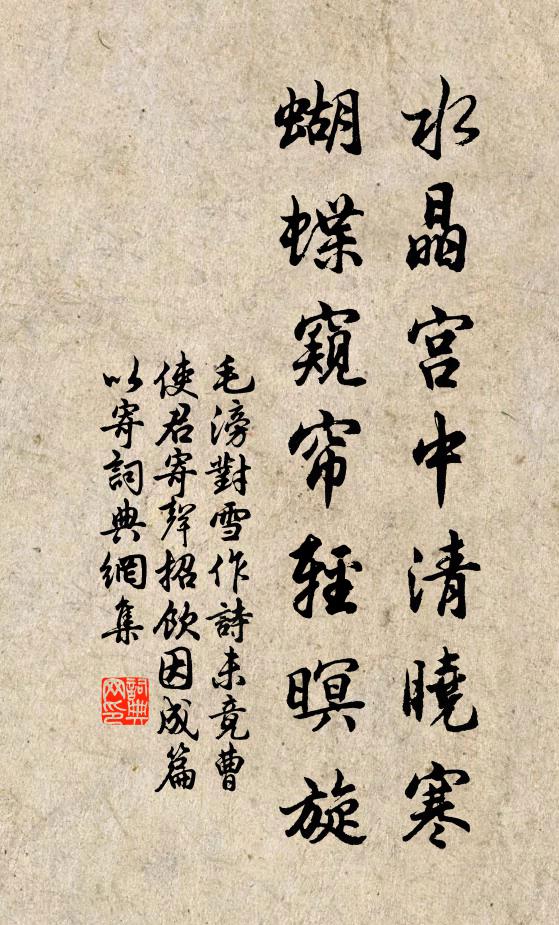 水晶宫中清曉寒
蝴蝶窺帘輕暝旋
毛滂對雪作詩未竟曹
使君寄聲招飲因成篇
以寄詞典網集
詞典
网印